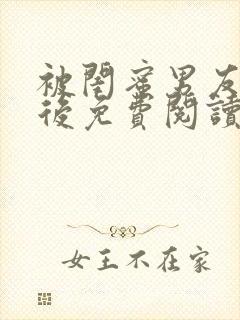 被閨蜜男友
後免費閱讀
女王不在家